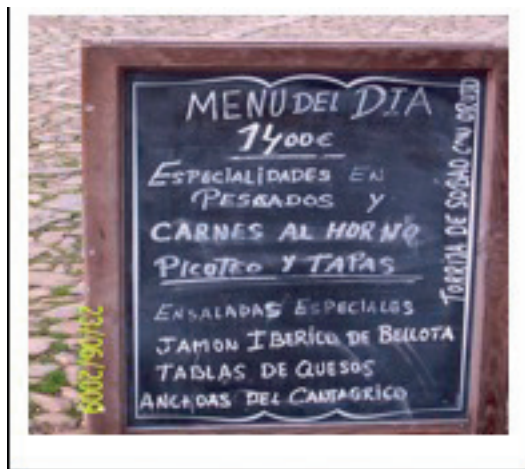 MENU DEL DIA
14'00€
ESPECIALIDADES EN
PESCADOS Y
CARNES AL HORNO
PICOTEO Y TAPAS
ENSALADAS ESPECIALES
JAMON IBERICO DE BELLOTA
TABLAS DE QUESOS
ANCHOAS DEL CANTABRICO
TORRIJA DE SOBAO CON ORUJO
23/06/2009